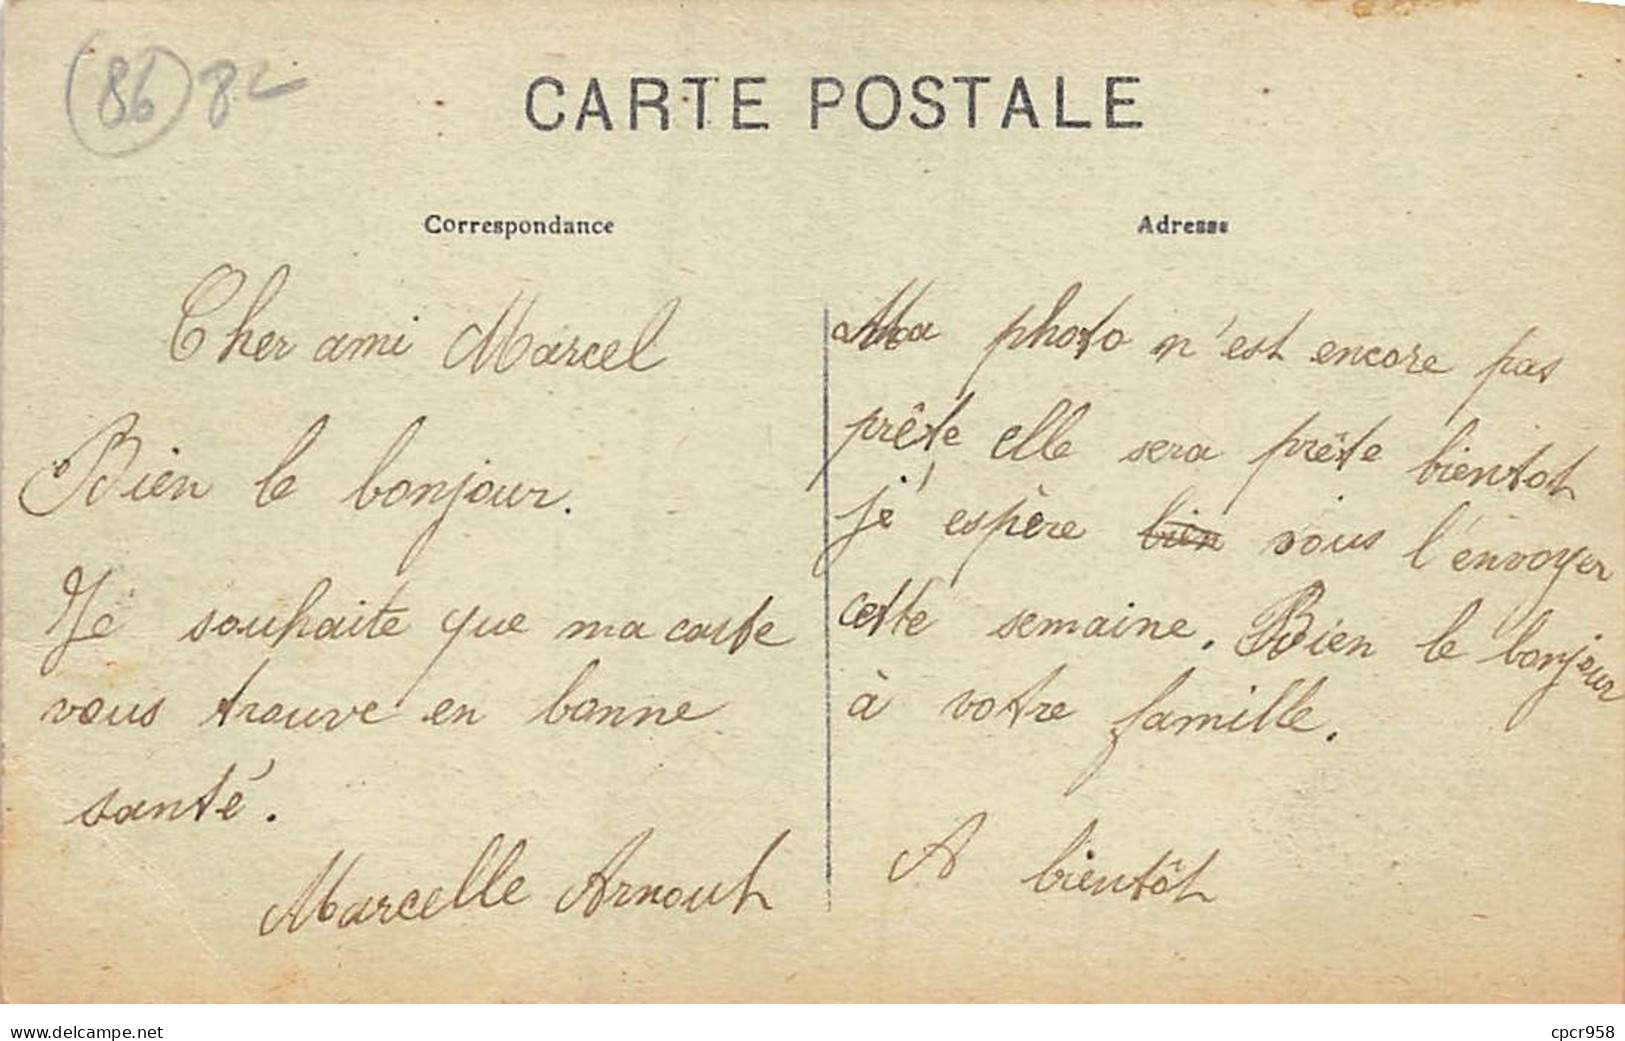 (86) 82
CARTE POSTALE
Correspondance
Cher ami Marcel
Bien le bonjour.
Je souhaite que ma carte
vous trouve en bonne
santé.
Marcelle Arnoult
Adresse
Ma photo n'est encore pas
prête elle sera prête bientot
j'espère bien vous l'envoyer
cette semaine. Bien le bonjour
à votre famille.
A bientôt
www.delcampe.net
cpcr958